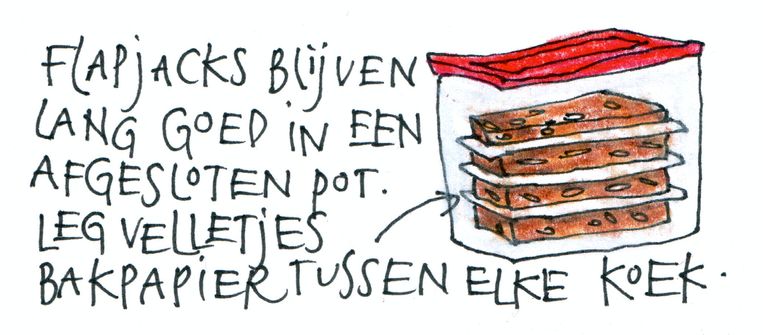 FLAPJACKS BLIJVEN
LANG GOED IN EEN
AFGESLOTEN POT.
LEG VELLETJES
BAKPAPIER TUSSEN ELKE KOEK.